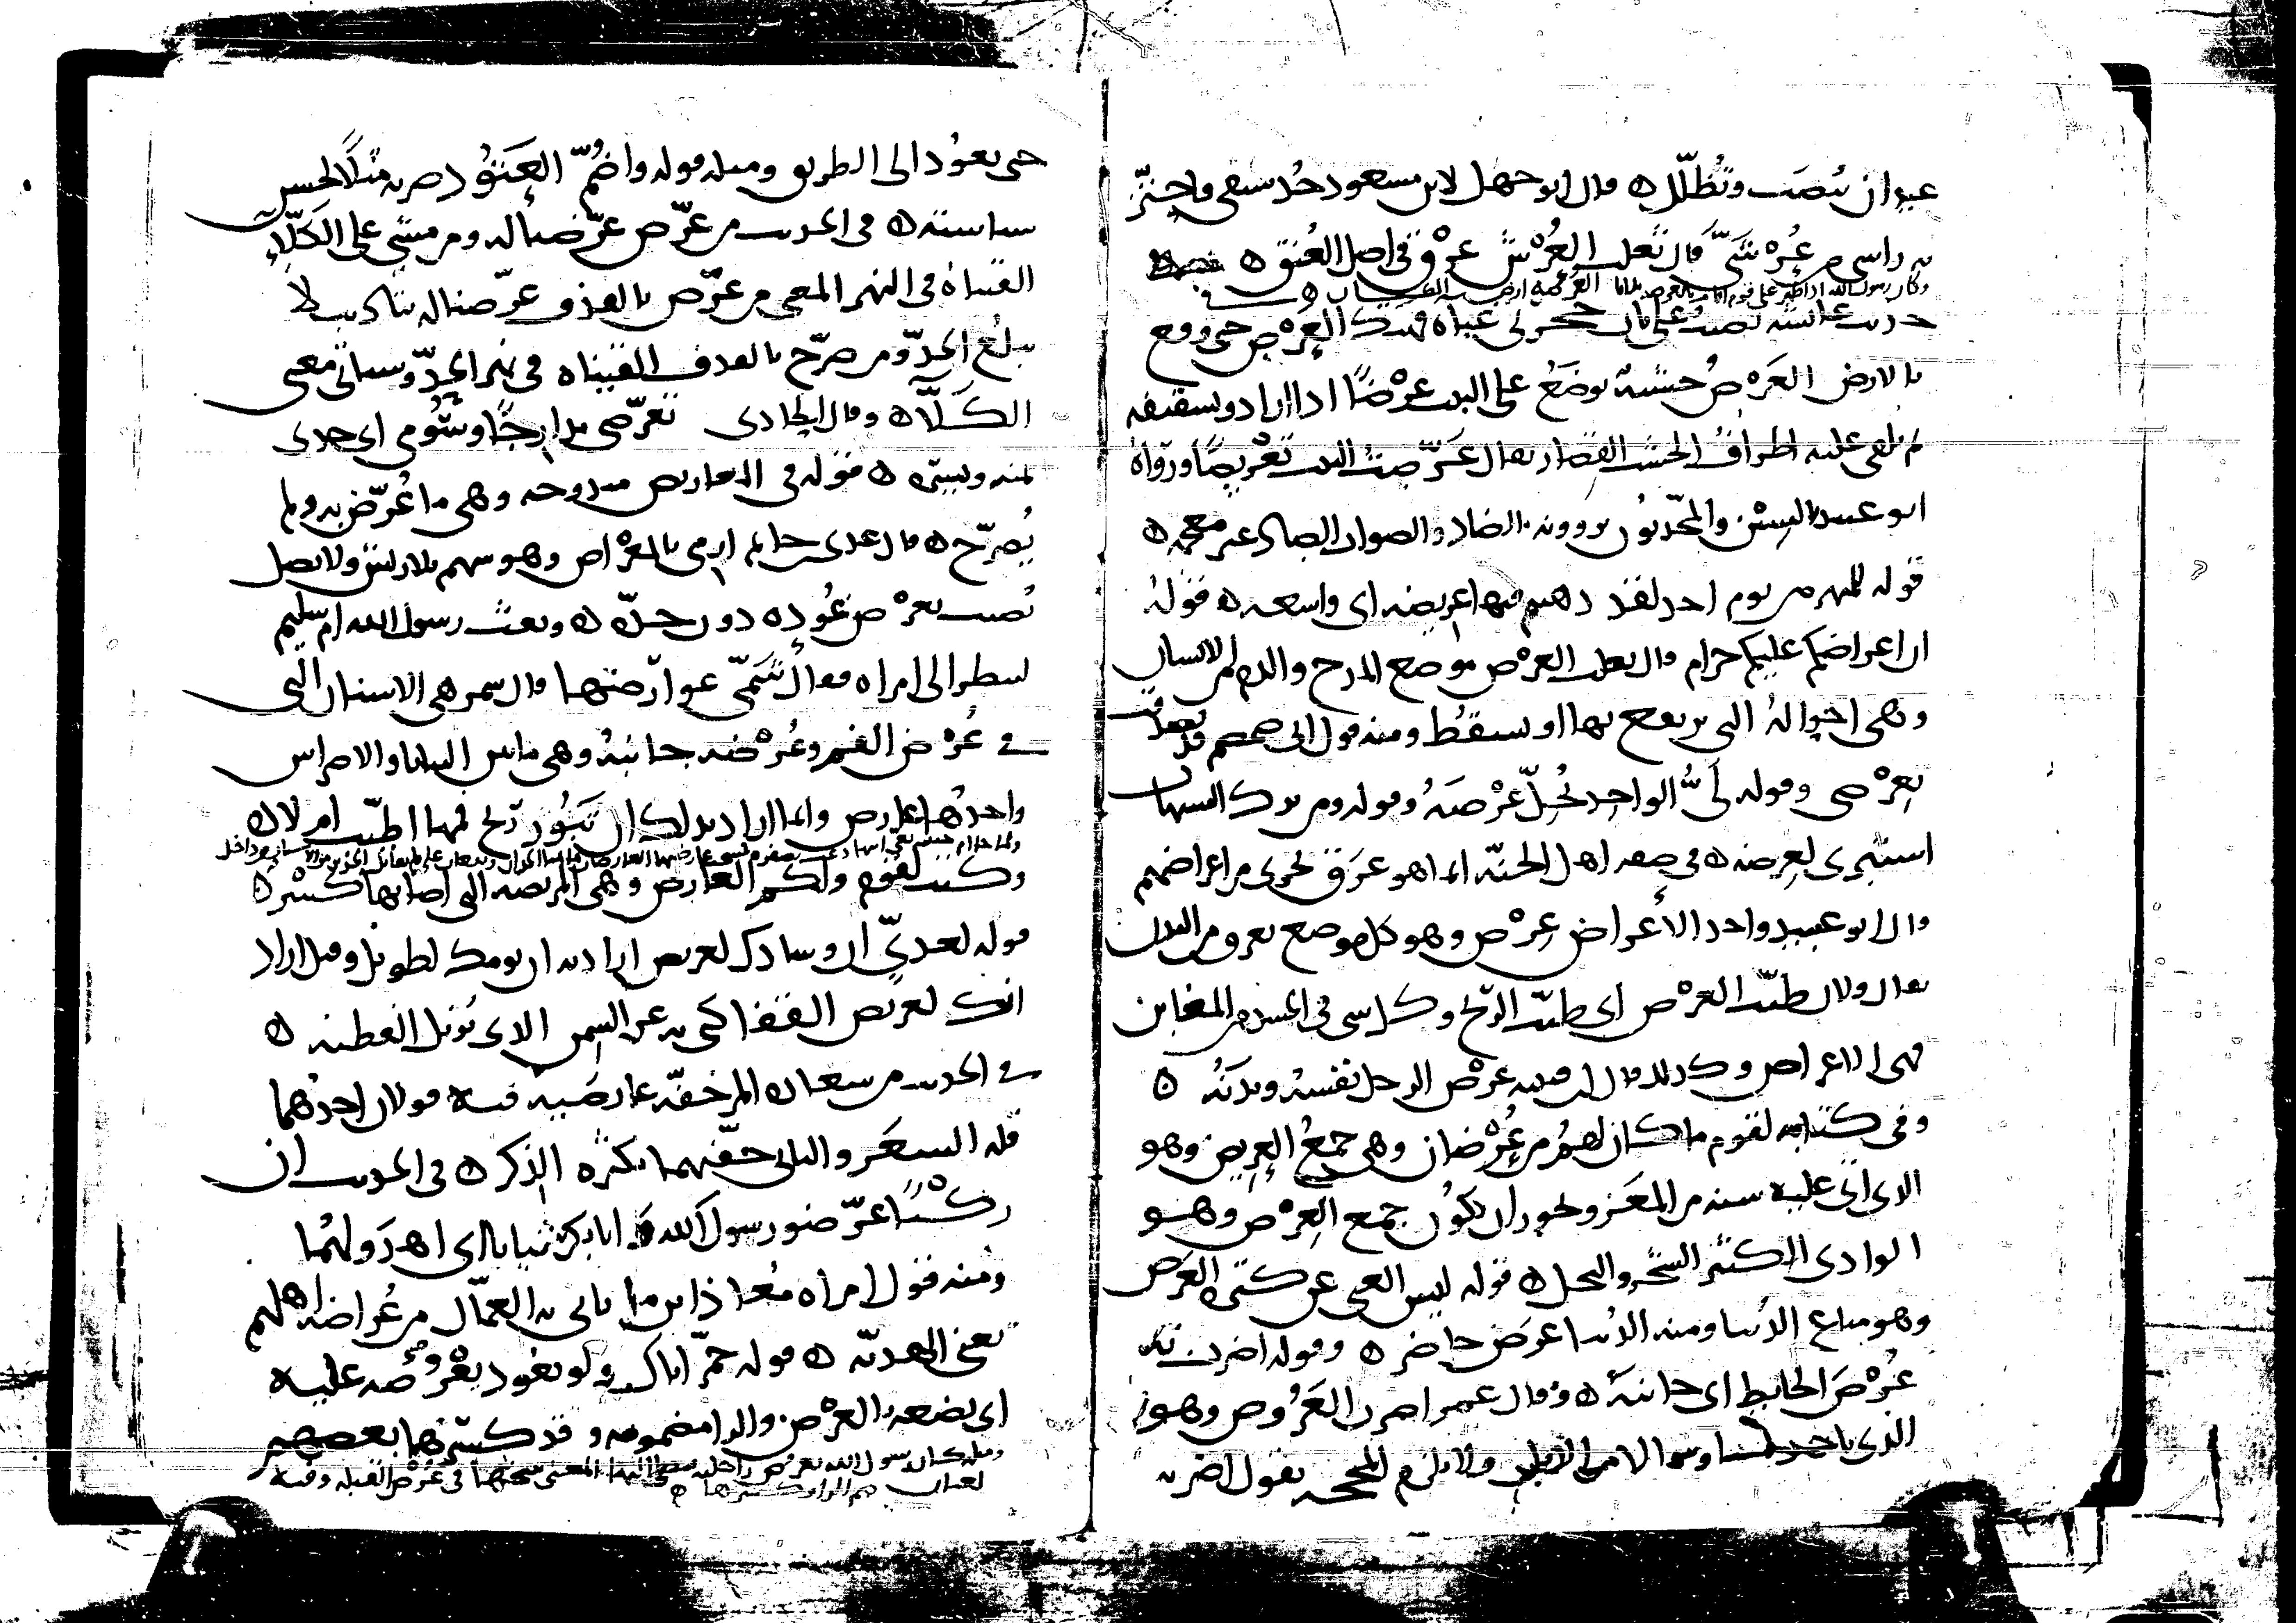 عيدان تنصب وتظلل ه قال ابو جهل لابن مسعود خذ سيفي فاجتز
به راسي من عرشي قال ثعلب العرش عرق في اصل العنق ه
وكان رسول الله اذا ظهر على قوم اقام بالعرصة ثلاثا
حديث عائشة نصبت على باب حجرتي عباه فهتك العرض حتى وقع
بالارض العرض خشبة توضع على البيت عرضا اذا ارادو تسقيفه
ثم تلقى عليه اطراف الخشب القصار يقال عرضت البيت تعريضا ورواه
ابو عبيد بالسين والمحدثون يروونه بالضاد والصواب الصاد غير معجمة ه
قوله للمنهزمين يوم احد لقد ذهبتم فيها عريضه اي واسعه ه قوله
ان اعراضكم عليكم حرام قال ثعلب العرض موضع المدح والذم من الانسان
وهي احواله التي يرتفع بها او يسقط ومنه قول ابي ضمضم قد تصدقت
بعرضي وقوله لي الواجد يحل عرضه وقوله ومن ترك الشبهات
استبرى لعرضه ه في صفه اهل الجنة انما هو عرق يجرى من اعراضهم
قال ابو عبيد واحد الاعراض عرض وهو كل موضع يعرق من البدن
يقال فلان طيب العرض اي طيب الريح وكل شي في الجسد من المغابن
فهي الاعراض وكذلك قال ابن قتيبه عرض الرجل نفسه وبدنه ه
وفي كتابه لقوم ما كان لهم من عرضان وهي جمع العريض وهو
الذى اتى عليه سنه من المعز ويجوز ان يكون جمع العرض وهو
الوادى الكثير الشجر والنخل ه قوله ليس الغنى عن كثره العرض
وهو متاع الدنيا ومنه الدنيا عرض حاضر ه وقوله اضرب به
عرض الحايط اى جانبه ه وقال عمر اضرب العروض وهو
الذى ياخد يمينا وشمالا من الابل ولا يلزم المحجه يقول اضربه
حتى يعود الى الطريق ومثله قوله واضم العنود ضربه مثلا لحسن
سياسته ه في الحديث من عرض عرضنا له ومن مشى على الكلاء
القيناه في النهر المعنى من عرض بالقذف عرضنا له بتاديب لا
يبلغ الحد ومن صرح بالقذف القيناه في نهر الحد وسياتي معنى
الكلاء ه وقال ذو البجادى تعرضى مدارجا وسومى اى خذى
يمنه ويسره ه قوله في المعاريض مندوحه وهي ما عرض به ولم
يصرح ه قال عدى بن حاتم ارمي بالمعراض وهو سهم بلا ريش ولا نصل
تصيب بعرض عوده دون حده ه وبعث رسول الله ام سليم
لتنظر الى امراه فقال شمي عوارضها قال شمر هي الاسنان التي
في عرض الفم وعرضه جانبه وهي ما بين الثنايا والاضراس
واحدها عارض وانما اراد بذلك ان تبور ريح فمها اطيب ام لا ه
وكتب لقوم ولكم العارض وهي المريضه التي اصابها كسر ه
قوله لعدي ان وسادك لعريض اراد به ان نومك لطويل وقيل اراد
انك لعريض القفا كني به عن السمن الذي يزيل الفطنه ه
في الحديث من سعاده المرء خفه عارضيه فيه قولان احدهما
قله الشعر والثاني خفتهما بكثره الذكر ه في الحديث ان
ركبا عرضو رسول الله وابا بكر ثيابا اى اهدو لهما
ومنه قول امراه معاذ اين ما ياتي به العمال من عراضه اهلهم
تعني الهديه ه قوله خمر اناك ولو بعود تعرضه عليه
اى تضعه بالعرض والرا مضمومه وقد كسرها بعضهم
ومثله كان رسول الله يعرض راحلته يصلي اليها المعنى ينيخها في عرض القبله وفيه
لغتان ضم الرا وكسرها